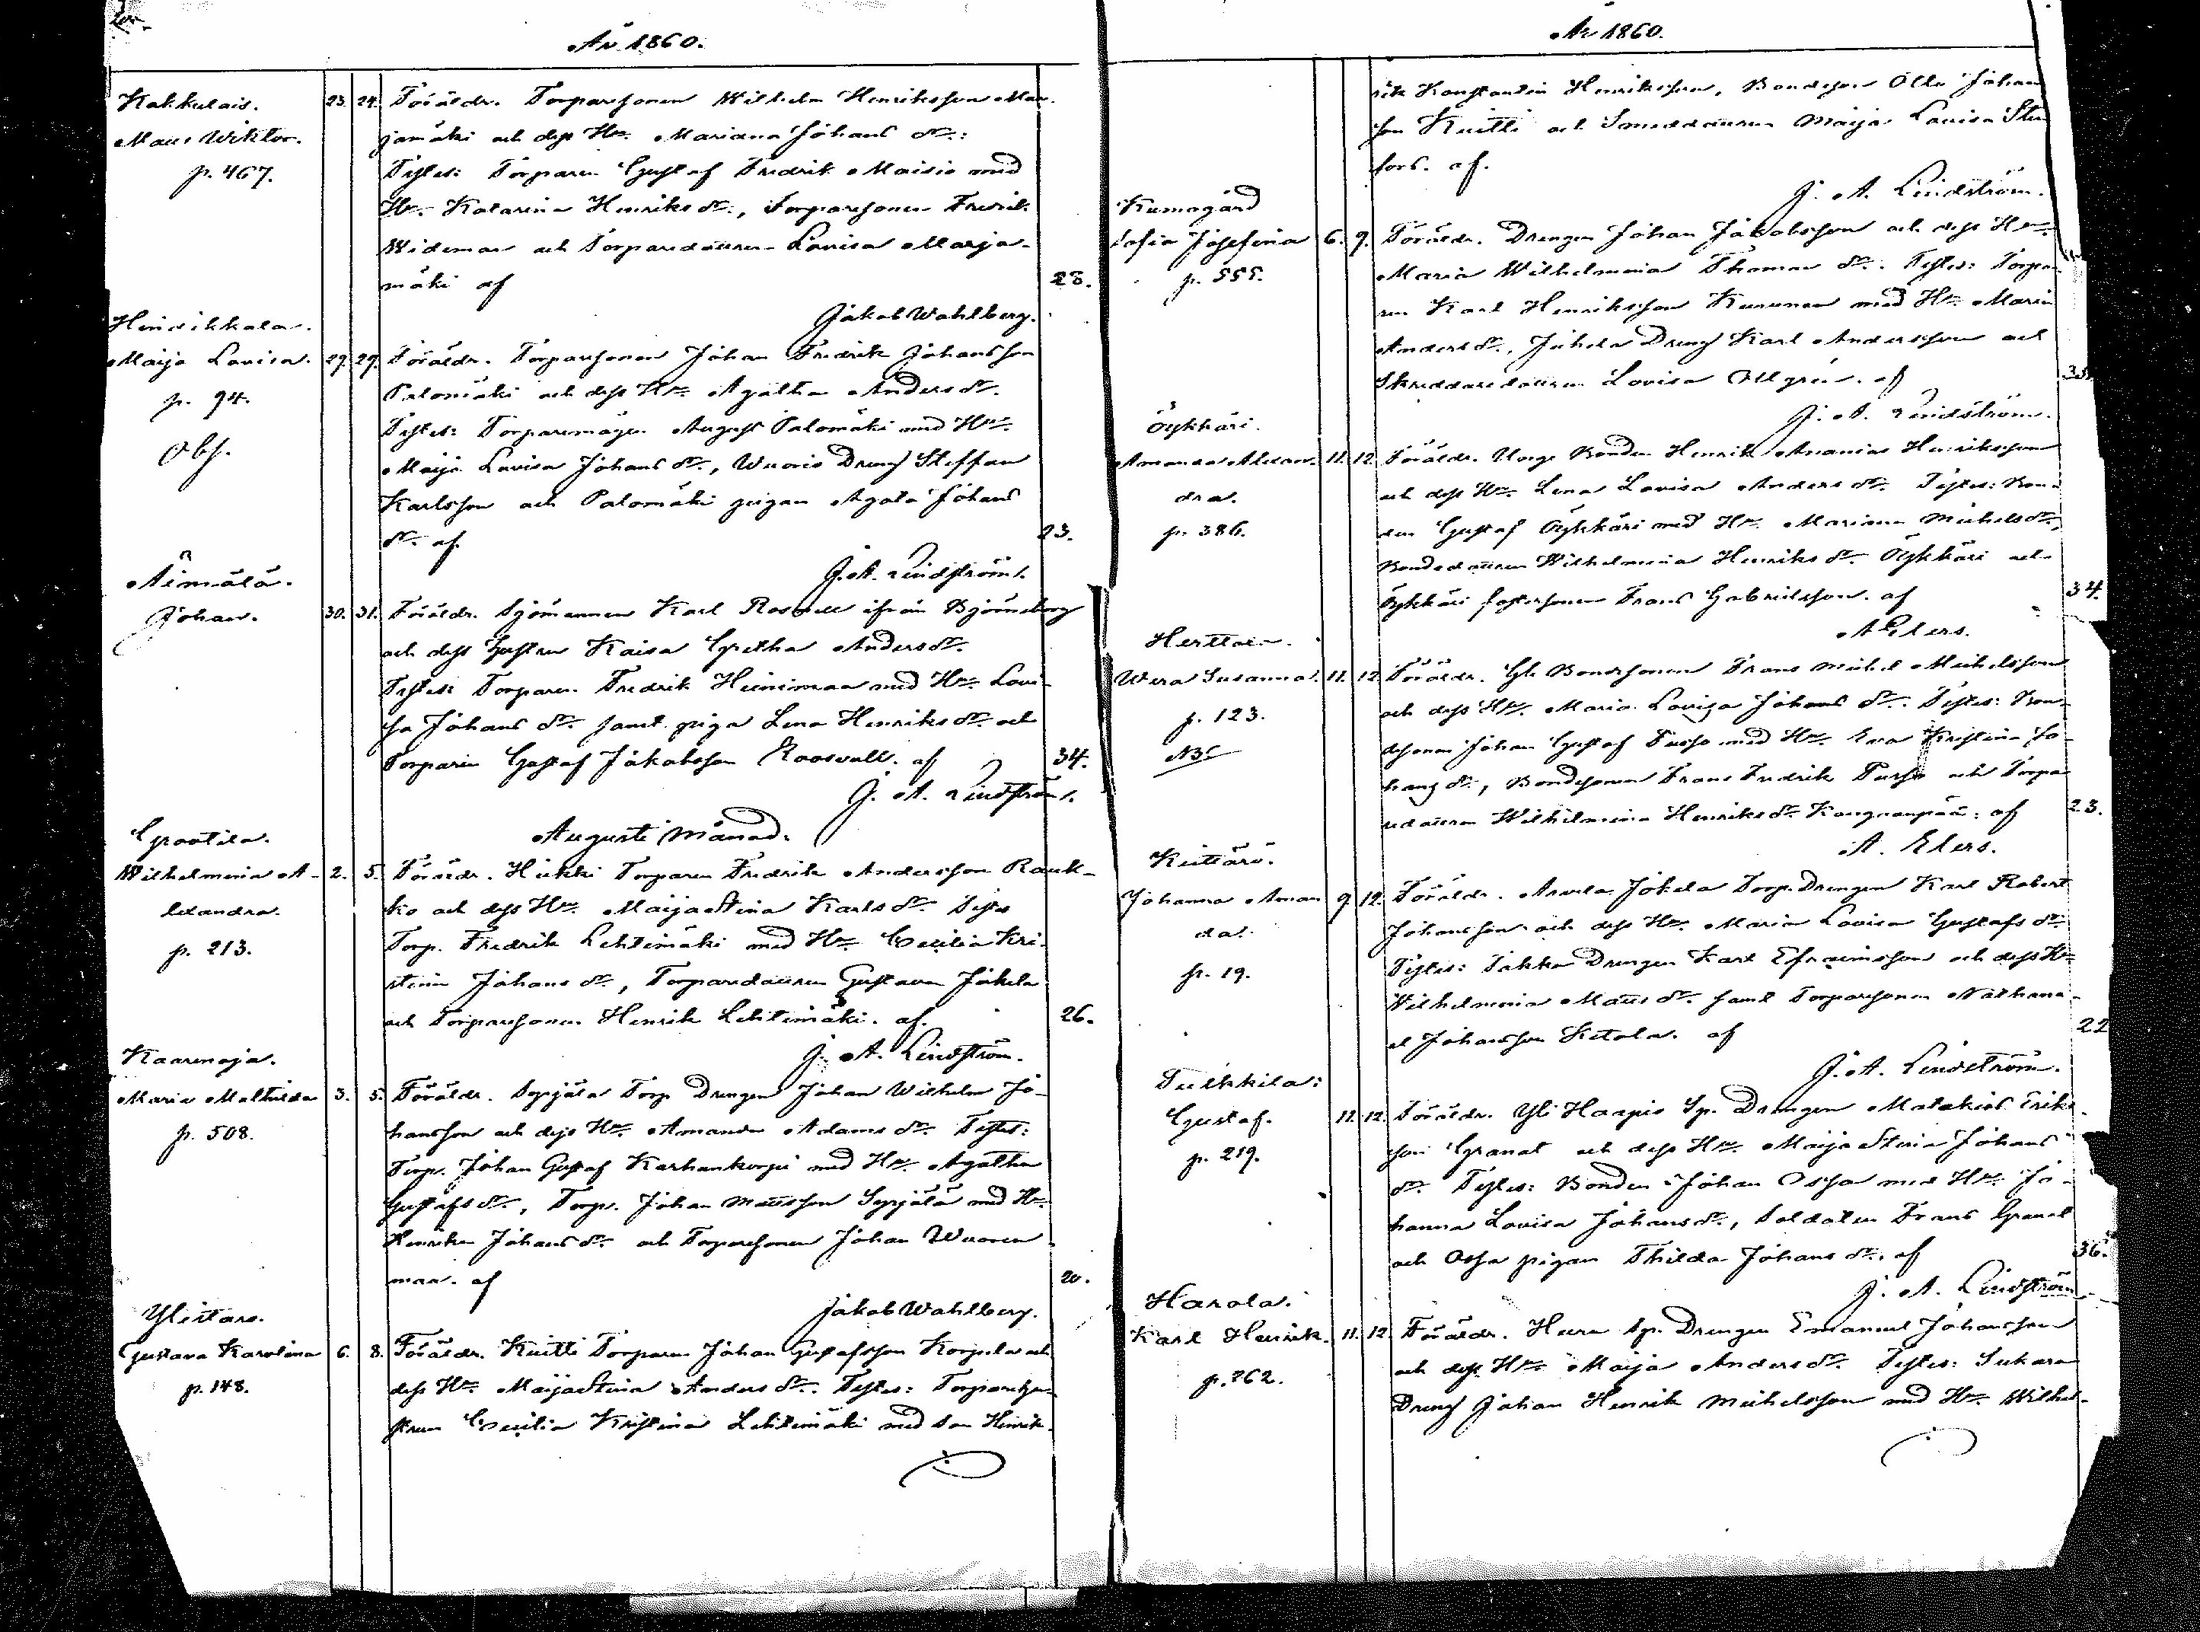 År 1860.
Kakkulais.
Mats Wiktor.
p. 467.
23. 24. Föräldr. Torparesonen Wilhelm Henriksson Mar-
jamäki och dess Hu. Mariana Johans dr.:
Testes: Torparen Gustaf Fredrik Maisio med
Hu. Katarina Henriks dr., Torparesonen Fredrik
Widemar och Torparedottren Lovisa Marja-
mäki af 28.
Jakob Wahlberg.
Heindikkala.
Maija Lovisa.
p. 94.
Obs.
27. 29. Föräldr. Torparesonen Johan Fredrik Johansson
Palomäki och dess Hu. Agatha Anders dr.
Testes: Torparemågen August Palomäki med Hu.
Maija Lovisa Johans dr., Wuorio Dreng Steffan
Karlsson och Palomäki pigan Agata Johans
dr. af 23.
J. A. Lindström.
Äimälä.
Johan.
30. 31. Föräldr. Sjömannen Karl Rosvall ifrån Björneborg
och dess Hustru Kaisa Gretha Anders dr.
Testes: Torparen Fredrik Heinimaa med Hu. Lovi-
sa Johans dr. samt piga Lena Henriks dr. och
Torparen Gustaf Jakobsson Roosvall. af 34.
J. A. Lindström.
Augusti Månad.
Grootila.
Wilhelmina A-
lexandra.
p. 213.
2. 5. Föräldr. Hiukki Torparen Fredrik Andersson Rauk-
ko och dess Hu. Maija Stina Karls dr. Testes
Torp. Fredrik Lehtimäki med Hu. Cecilia Kri-
stina Johans dr., Torparedottren Gustava Jokela
och Torparesonen Henrik Lehtimäki. af. 26.
J. A. Lindström.
Kaarenoja.
Maria Mathilda
p. 508.
3. 5. Föräldr. Sorjälä Torp Drengen Johan Wilhelm Jo-
hansson och dess Hu. Amanda Adams dr. Testes:
Torp. Johan Gustaf Karhankorpi med Hu. Agatha
Gustafs dr., Torp. Johan Matsson Sorjälä med Hu.
Henrika Johans dr. och Torparesonen Johan Wuoren-
maa. af 20.
Jakob Wahlberg.
Ylistaro.
Gustava Karolina
p. 148.
6. 8. Föräldr. Kuitti Torparen Johan Gustafsson Korpela och
dess Hu. Maija Stina Anders dr. Testes: Torparehu-
strun Cecilia Kristina Lehtimäki med son Henrik
År 1860.
rik Konstantin Henriksson, Bondeson Olli Johan
son Kuitti och Smeddottren Maija Lovisa Sten
fors. af.
J. A. Lindström.
Kumogård
Sofia Josefina
p. 555.
6. 9. Föräldr. Drengen Johan Jakobsson och dess Hu.
Maria Wilhelmina Thomas dr. Testes: Torpa-
ren Karl Henriksson Kurunen med Hu. Maria
Anders dr., Juhela Dreng Karl Andersson och
Skreddaredottren Lovisa Allgrén. af
J. A. Lindström.
Öykkäri.
Amanda Alexan-
dra.
p. 386.
11. 12. Föräldr. Unge Bonden Henrik Ananias Henriksson
och dess Hu. Lena Lovisa Anders dr. Testes: Bon-
den Gustaf Öykkäri med Hu. Mariana Michels dr.,
Bondedottren Wilhelmina Henriks dr. Öykkäri och
Öykkäri fostersonen Frans Gabrielsson. af 34.
A. Elers.
Herttola.
Wera Susanna.
p. 123.
NB.
11. 12. Föräldr. Gle Bondsonen Frans Michel Michelsson
och dess Hu. Maria Lovisa Johans dr. Testes: Bon-
desonen Johan Gustaf Turso med Hu. Eva Kristina Jo-
hans dr., Bondesonen Frans Fredrik Turso och Torpa-
redottren Wilhelmina Henriks dr. Kangenpää: af 23.
A. Elers.
Kiettärö.
Johanna Aman
da.
p. 19.
9 12. Föräldr. Anula Jokela Torp. Drengen Karl Robert
Johansson och dess Hu. Maria Lovisa Gustafs dr.
Testes: Takko Drengen Karl Efraimsson och dess Hu
Wilhelmina Mats dr. samt Torparesonen Nathana-
el Johansson Ketola. af 22
J. A. Lindström.
Tulkkila:
Gustaf.
p. 219.
11. 12. Föräldr. Yli Haapio Sp. Drengen Malakias Eriks-
son Granat och dess Hu. Maija Stina Johans
dr. Testes: Bonden Johan Ossa med Hu. Jo-
hanna Lovisa Johans dr., Soldaten Frans Granat
och Ossa pigan Thilda Johans dr. af 36.
J. A. Lindström
Harola.
Karl Henrik.
p. 262.
11. 12. Föräldr. Heera Sp. Drengen Emanuel Johansson
och dess Hu. Maija Anders dr. Testes: Sukara
Dreng Johan Henrik Michelsson med Hu. Wilhel-